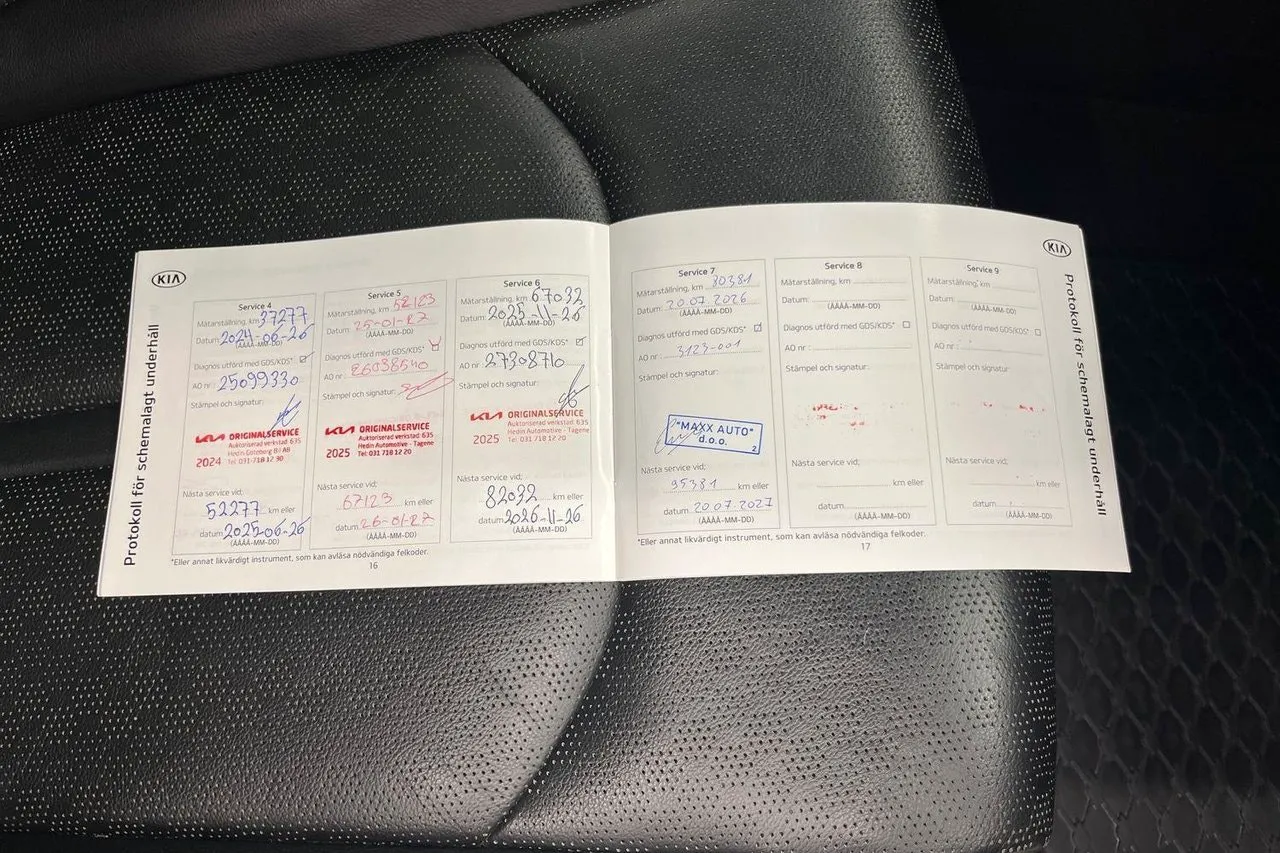 KIA
Protokoll för schemalagt underhåll
Service 4
Mätarställning, km 37277
Datum: 2024-06-26
(ÅÅÅÅ-MM-DD)
Diagnos utförd med GDS/KDS*
AO nr: 25099330
Stämpel och signatur:
KIA ORIGINALSERVICE
Auktoriserad verkstad 635
Hedin Göteborg Bil AB
2024 Tel: 031-718 12 30
Nästa service vid;
52277 km eller
datum 2025-06-26
(ÅÅÅÅ-MM-DD)
Service 5
Mätarställning, km 52123
Datum: 25-01-27
(ÅÅÅÅ-MM-DD)
Diagnos utförd med GDS/KDS*
AO nr: 26038540
Stämpel och signatur:
KIA ORIGINALSERVICE
Auktoriserad verkstad 635
Hedin Automotive - Tagene
2025 Tel: 031 718 12 20
Nästa service vid;
67123 km eller
datum 26-01-27
(ÅÅÅÅ-MM-DD)
Service 6
Mätarställning, km 67032
Datum: 2025-11-26
(ÅÅÅÅ-MM-DD)
Diagnos utförd med GDS/KDS*
AO nr: 27308710
Stämpel och signatur:
KIA ORIGINALSERVICE
Auktoriserad verkstad 635
Hedin Automotive - Tagene
2025 Tel: 031 718 12 20
Nästa service vid;
82032 km eller
datum 2026-11-26
(ÅÅÅÅ-MM-DD)
*Eller annat likvärdigt instrument, som kan avläsa nödvändiga felkoder.
16
KIA
Protokoll för schemalagt underhåll
Service 7
Mätarställning, km 80381
Datum: 20.07.2026
(ÅÅÅÅ-MM-DD)
Diagnos utförd med GDS/KDS*
AO nr: 3123-001
Stämpel och signatur:
"MAXX AUTO"
d.o.o.
2
Nästa service vid;
95381 km eller
datum 20.07.2027
(ÅÅÅÅ-MM-DD)
Service 8
Mätarställning, km
Datum:
(ÅÅÅÅ-MM-DD)
Diagnos utförd med GDS/KDS*
AO nr:
Stämpel och signatur:
Nästa service vid;
km eller
datum
(ÅÅÅÅ-MM-DD)
Service 9
Mätarställning, km
Datum:
(ÅÅÅÅ-MM-DD)
Diagnos utförd med GDS/KDS*
AO nr:
Stämpel och signatur:
Nästa service vid;
km eller
datum
(ÅÅÅÅ-MM-DD)
*Eller annat likvärdigt instrument, som kan avläsa nödvändiga felkoder.
17